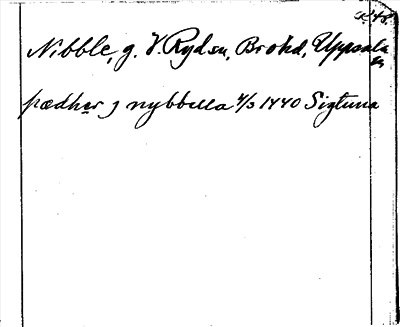 Nibble, g. V. Ryd sn, Bro hd, Uppsala
ln
pædher j nybbella 4/3 1440 Sigtuna